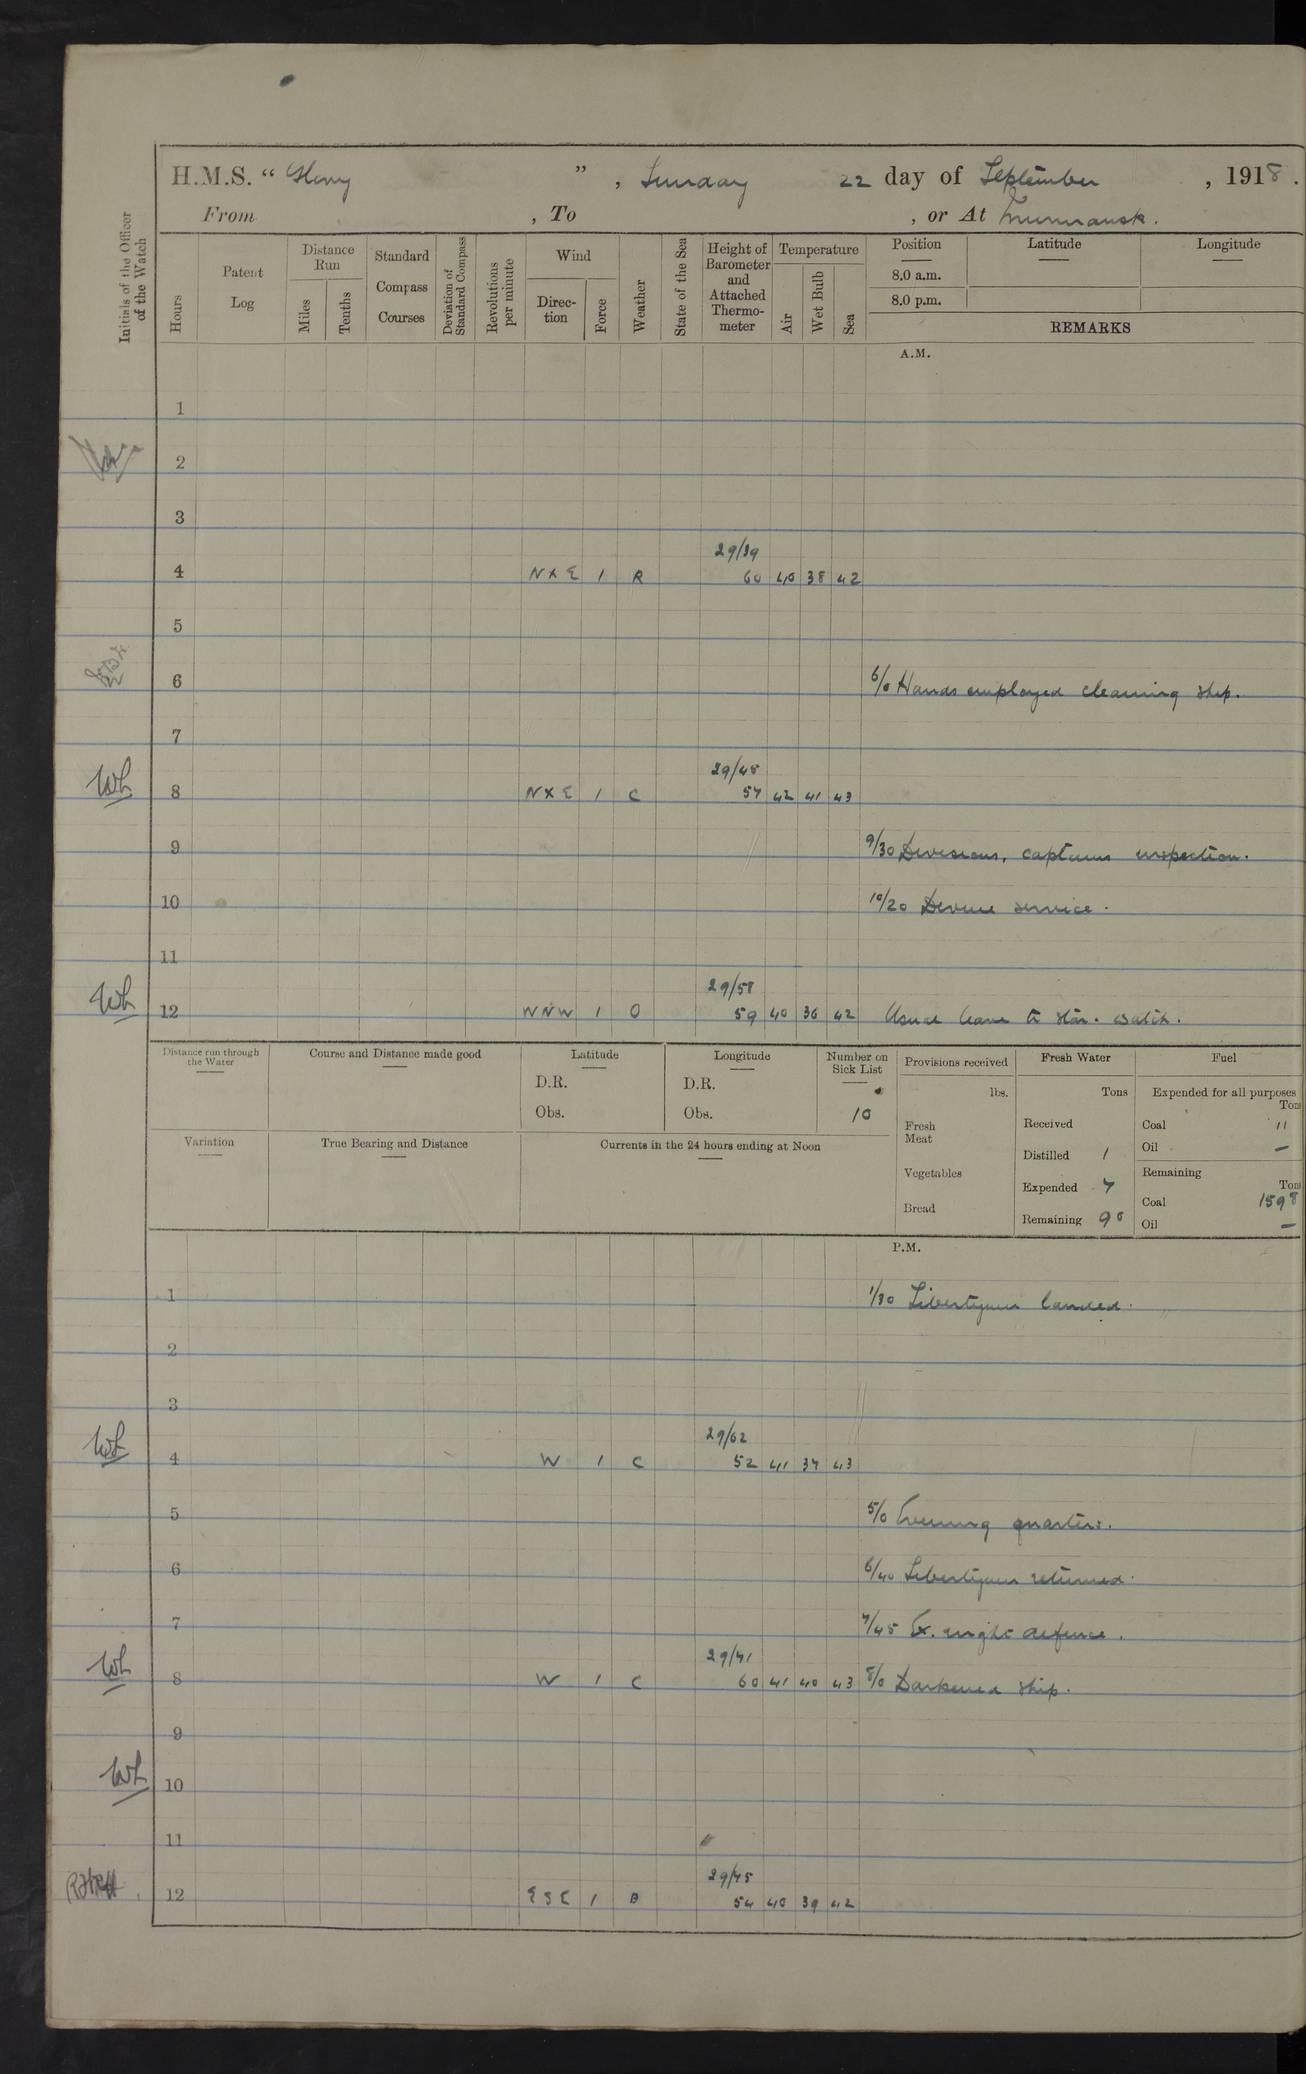 H.M.S. "Glory", Sunday 22 day of September, 1918.
From , To , or At Murmansk.
Initials of the Officer of the Watch
Hours
Patent Log
Distance Run
Miles
Tenths
Standard Compass Courses
Deviation of Standard Compass
Revolutions per minute
Wind
Direc-tion
Force
Weather
State of the Sea
Height of Barometer and Attached Thermo-meter
Temperature
Air
Wet Bulb
Sea
Position Latitude Longitude
8.0 a.m.
8.0 p.m.
REMARKS
A.M.
1
2
3
29/39
4 N X E 1 R 60 40 38 42
5
6 6/0 Hands employed cleaning ship.
7
29/45
WL 8 N X E 1 C 57 42 41 43
9 9/30 Divisions, captains inspection.
10 10/20 Devine service.
11
29/58
WL 12 WNW 1 O 59 40 36 42 Usual leave to star. watch.
Distance run through the Water
Course and Distance made good
Latitude
D.R.
Obs.
Longitude
D.R.
Obs.
Number on Sick List
10
Provisions received
lbs.
Fresh Meat
Vegetables
Bread
Fresh Water
Tons
Received
Distilled 1
Expended 7
Remaining 90
Fuel
Expended for all purposes
Tons
Coal 11
Oil —
Remaining
Tons
Coal 1598
Oil —
Variation
True Bearing and Distance
Currents in the 24 hours ending at Noon
P.M.
1 1/30 Libertymen landed.
2
3
29/62
WL 4 W 1 C 52 41 37 43
5 5/0 Evening quarters.
6 6/40 Libertymen returned.
7 7/45 Ex. night defence.
29/71
WL 8 W 1 C 60 41 40 43 8/0 Darkened ship.
9
WL 10
11
29/75
12 ESE 1 B 54 40 39 42